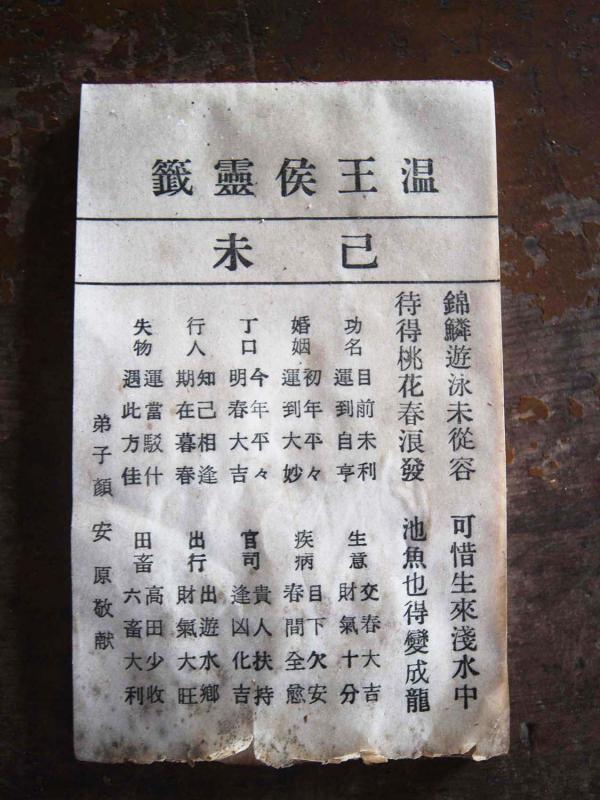 温王侯靈籤
己未
錦鱗遊泳未從容 可惜生來淺水中
待得桃花春浪發 池魚也得變成龍
功名 目前未利 運到自亨
生意 交春大吉 財氣十分
婚姻 初年平々 運到大妙
疾病 目下欠安 春間全愈
丁口 今年平々 明春大吉
官司 貴人扶持 逢凶化吉
行人 知己相逢 期在暮春
出行 出遊水鄉 財氣大旺
失物 運當駁什 遇此方佳
田畜 高田少收 六畜大利
弟子顏安原敬献